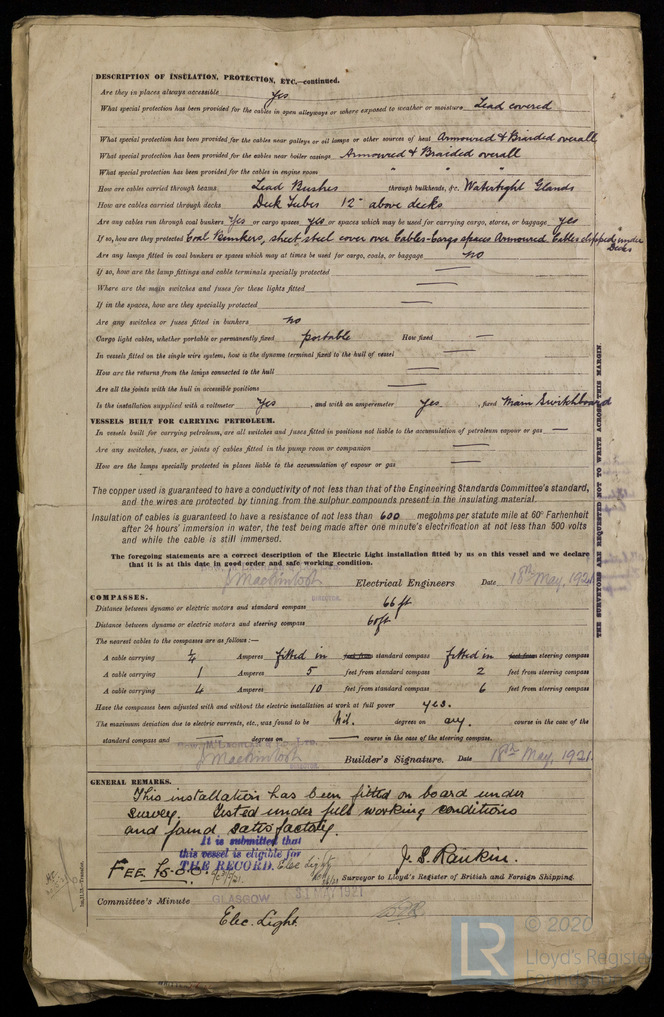 DESCRIPTION OF INSULATION, PROTECTION, ETC.—continued.
Are they in places always accessible Yes
What special protection has been provided for the cables in open alleyways or where exposed to weather or moisture Lead covered
What special protection has been provided for the cables near galleys or oil lamps or other sources of heat Armoured & Braided overall
What special protection has been provided for the cables near boiler casings Armoured & Braided overall
What special protection has been provided for the cables in engine room " " "
How are cables carried through beams Lead Bushes through bulkheads, &c. Watertight Glands
How are cables carried through decks Deck Tubes 12" above decks
Are any cables run through coal bunkers Yes or cargo spaces yes or spaces which may be used for carrying cargo, stores, or baggage yes
If so, how are they protected Coal Bunkers, sheet steel cover over Cables-Cargo spaces Armoured Cables clipped under Decks
Are any lamps fitted in coal bunkers or spaces which may at times be used for cargo, coals, or baggage no
If so, how are the lamp fittings and cable terminals specially protected —
Where are the main switches and fuses for these lights fitted —
If in the spaces, how are they specially protected —
Are any switches or fuses fitted in bunkers no
Cargo light cables, whether portable or permanently fixed portable How fixed —
In vessels fitted on the single wire system, how is the dynamo terminal fixed to the hull of vessel —
How are the returns from the lamps connected to the hull —
Are all the joints with the hull in accessible positions —
Is the installation supplied with a voltmeter Yes , and with an amperemeter Yes , fixed Main Switchboard
VESSELS BUILT FOR CARRYING PETROLEUM.
In vessels built for carrying petroleum, are all switches and fuses fitted in positions not liable to the accumulation of petroleum vapour or gas —
Are any switches, fuses, or joints of cables fitted in the pump room or companion —
How are the lamps specially protected in places liable to the accumulation of vapour or gas —
The copper used is guaranteed to have a conductivity of not less than that of the Engineering Standards Committee's standard,
and the wires are protected by tinning from the sulphur compounds present in the insulating material.
Insulation of cables is guaranteed to have a resistance of not less than 600 megohms per statute mile at 60° Farhenheit
after 24 hours' immersion in water, the test being made after one minute's electrification at not less than 500 volts
and while the cable is still immersed.
The foregoing statements are a correct description of the Electric Light installation fitted by us on this vessel and we declare
that it is at this date in good order and safe working condition.
J Mackintosh Electrical Engineers Date 18th May, 1921.
DIRECTOR.
COMPASSES.
Distance between dynamo or electric motors and standard compass 66 ft
Distance between dynamo or electric motors and steering compass 60 ft
The nearest cables to the compasses are as follows:—
A cable carrying 1/4 Amperes fitted in feet from standard compass fitted in feet from steering compass
A cable carrying 1 Amperes 5 feet from standard compass 2 feet from steering compass
A cable carrying 4 Amperes 10 feet from standard compass 6 feet from steering compass
Have the compasses been adjusted with and without the electric installation at work at full power yes.
The maximum deviation due to electric currents, etc., was found to be Nil. degrees on any. course in the case of the
standard compass and — degrees on — course in the case of the steering compass.
J Mackintosh Builder's Signature. Date 18th May, 1921.
DIRECTOR
GENERAL REMARKS.
This installation has been fitted on board under
survey. Tested under full working conditions
and found satisfactory.
It is submitted that
this vessel is eligible for
THE RECORD. Elec Light
J. S. Rankin.
Surveyor to Lloyd's Register of British and Foreign Shipping.
Committee's Minute GLASGOW 1921
Elec. Light.
THE SURVEYORS ARE REQUESTED NOT TO WRITE ACROSS THIS MARGIN.
© 2020
LR Lloyd's Register
Foundation